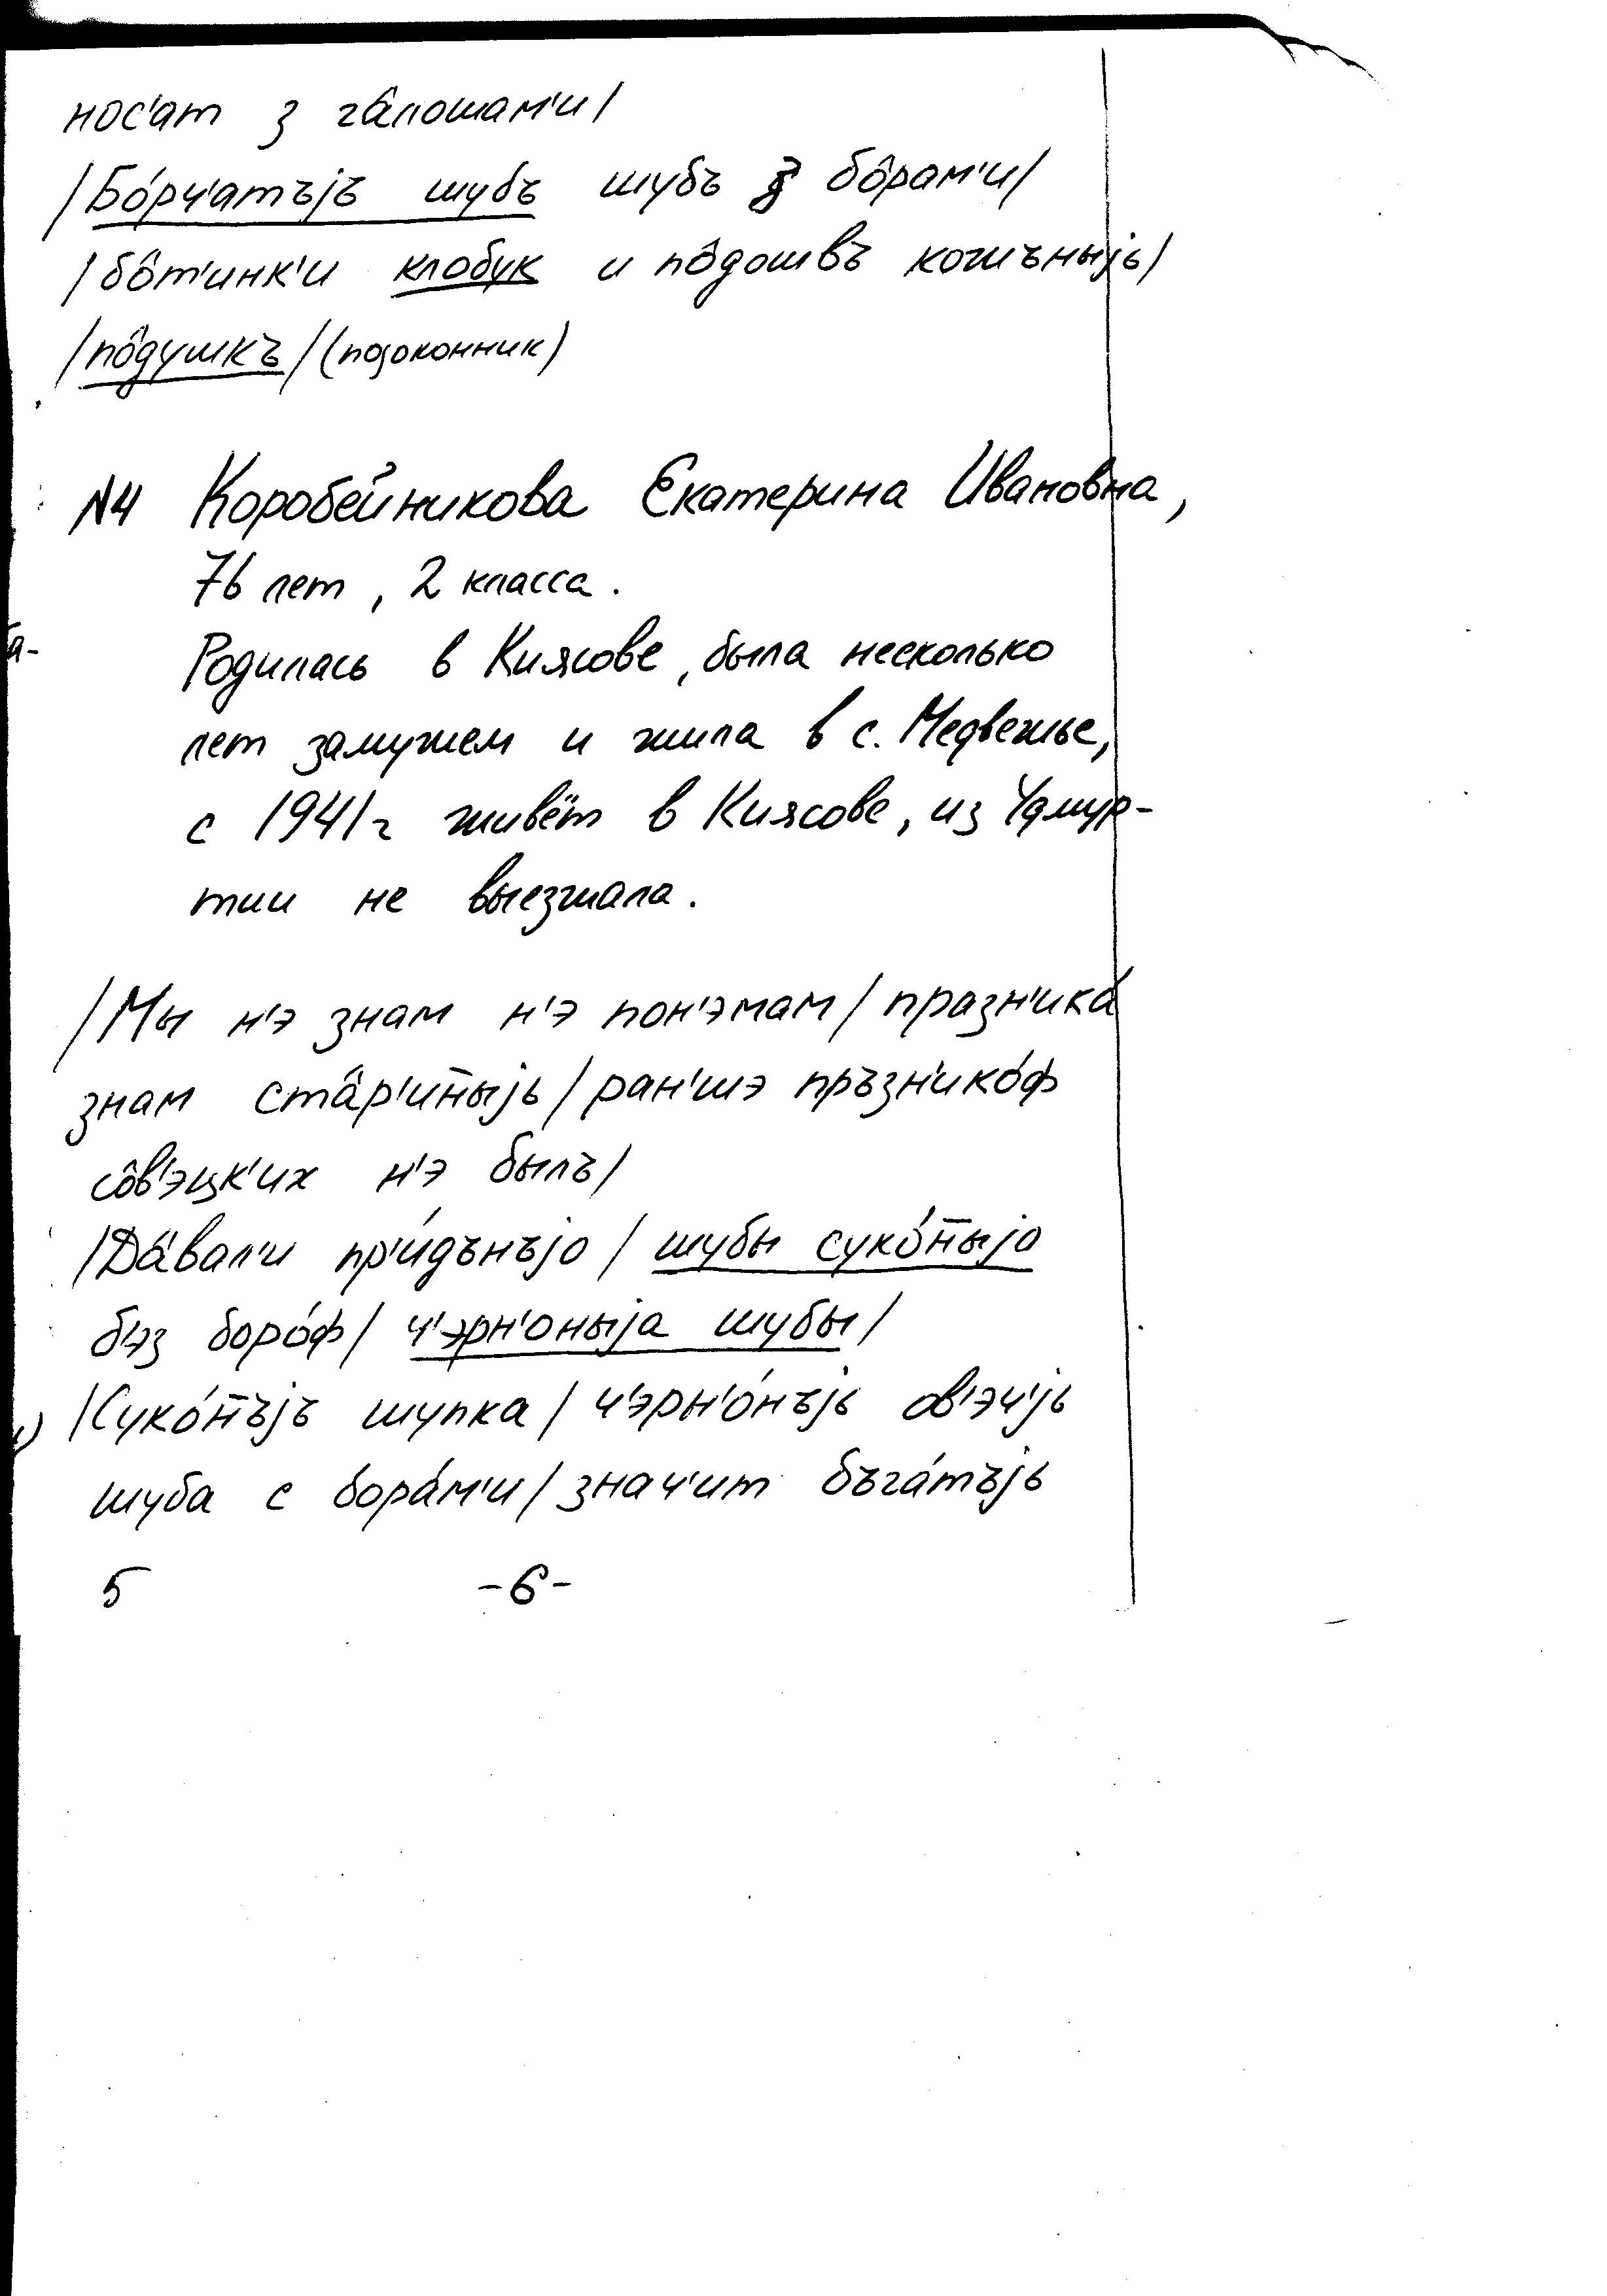 нос'ат з га̂лошам'и/
/Бо́рч'атъjъ шубъ шубъ з бо̂рам'и/
/бо̂т'инк'и клобук и по̂дошвъ кожъныjь/
/по̂душкъ/(подоконник)
N4 Коробейникова Екатерина Ивановна,
76 лет, 2 класса.
Родилась в Киясове, была несколько
лет замужем и жила в с. Медвежье,
с 1941г живёт в Киясове, из Удмур-
тии не выезжала.
/Мы н'э знам н'э пон'эмам/ празн'ика́
знам ста̂р'ин̄ыjь/ ран'шэ пръзн'ико́ф
со̂в'эцк'их н'э былъ/
/Да̂вал'и пр'и́дънъjо/ шубы суко́н̄ыjо
б'эз боро́ф/ ч'эрн'оныjа шубы/
/Суко́н̄ъjъ шупка/ ч'эрн'о́нъjь ов'эч'jь
шуба с бора́м'и/ знач'ит бъга́тъjь
5 -6-